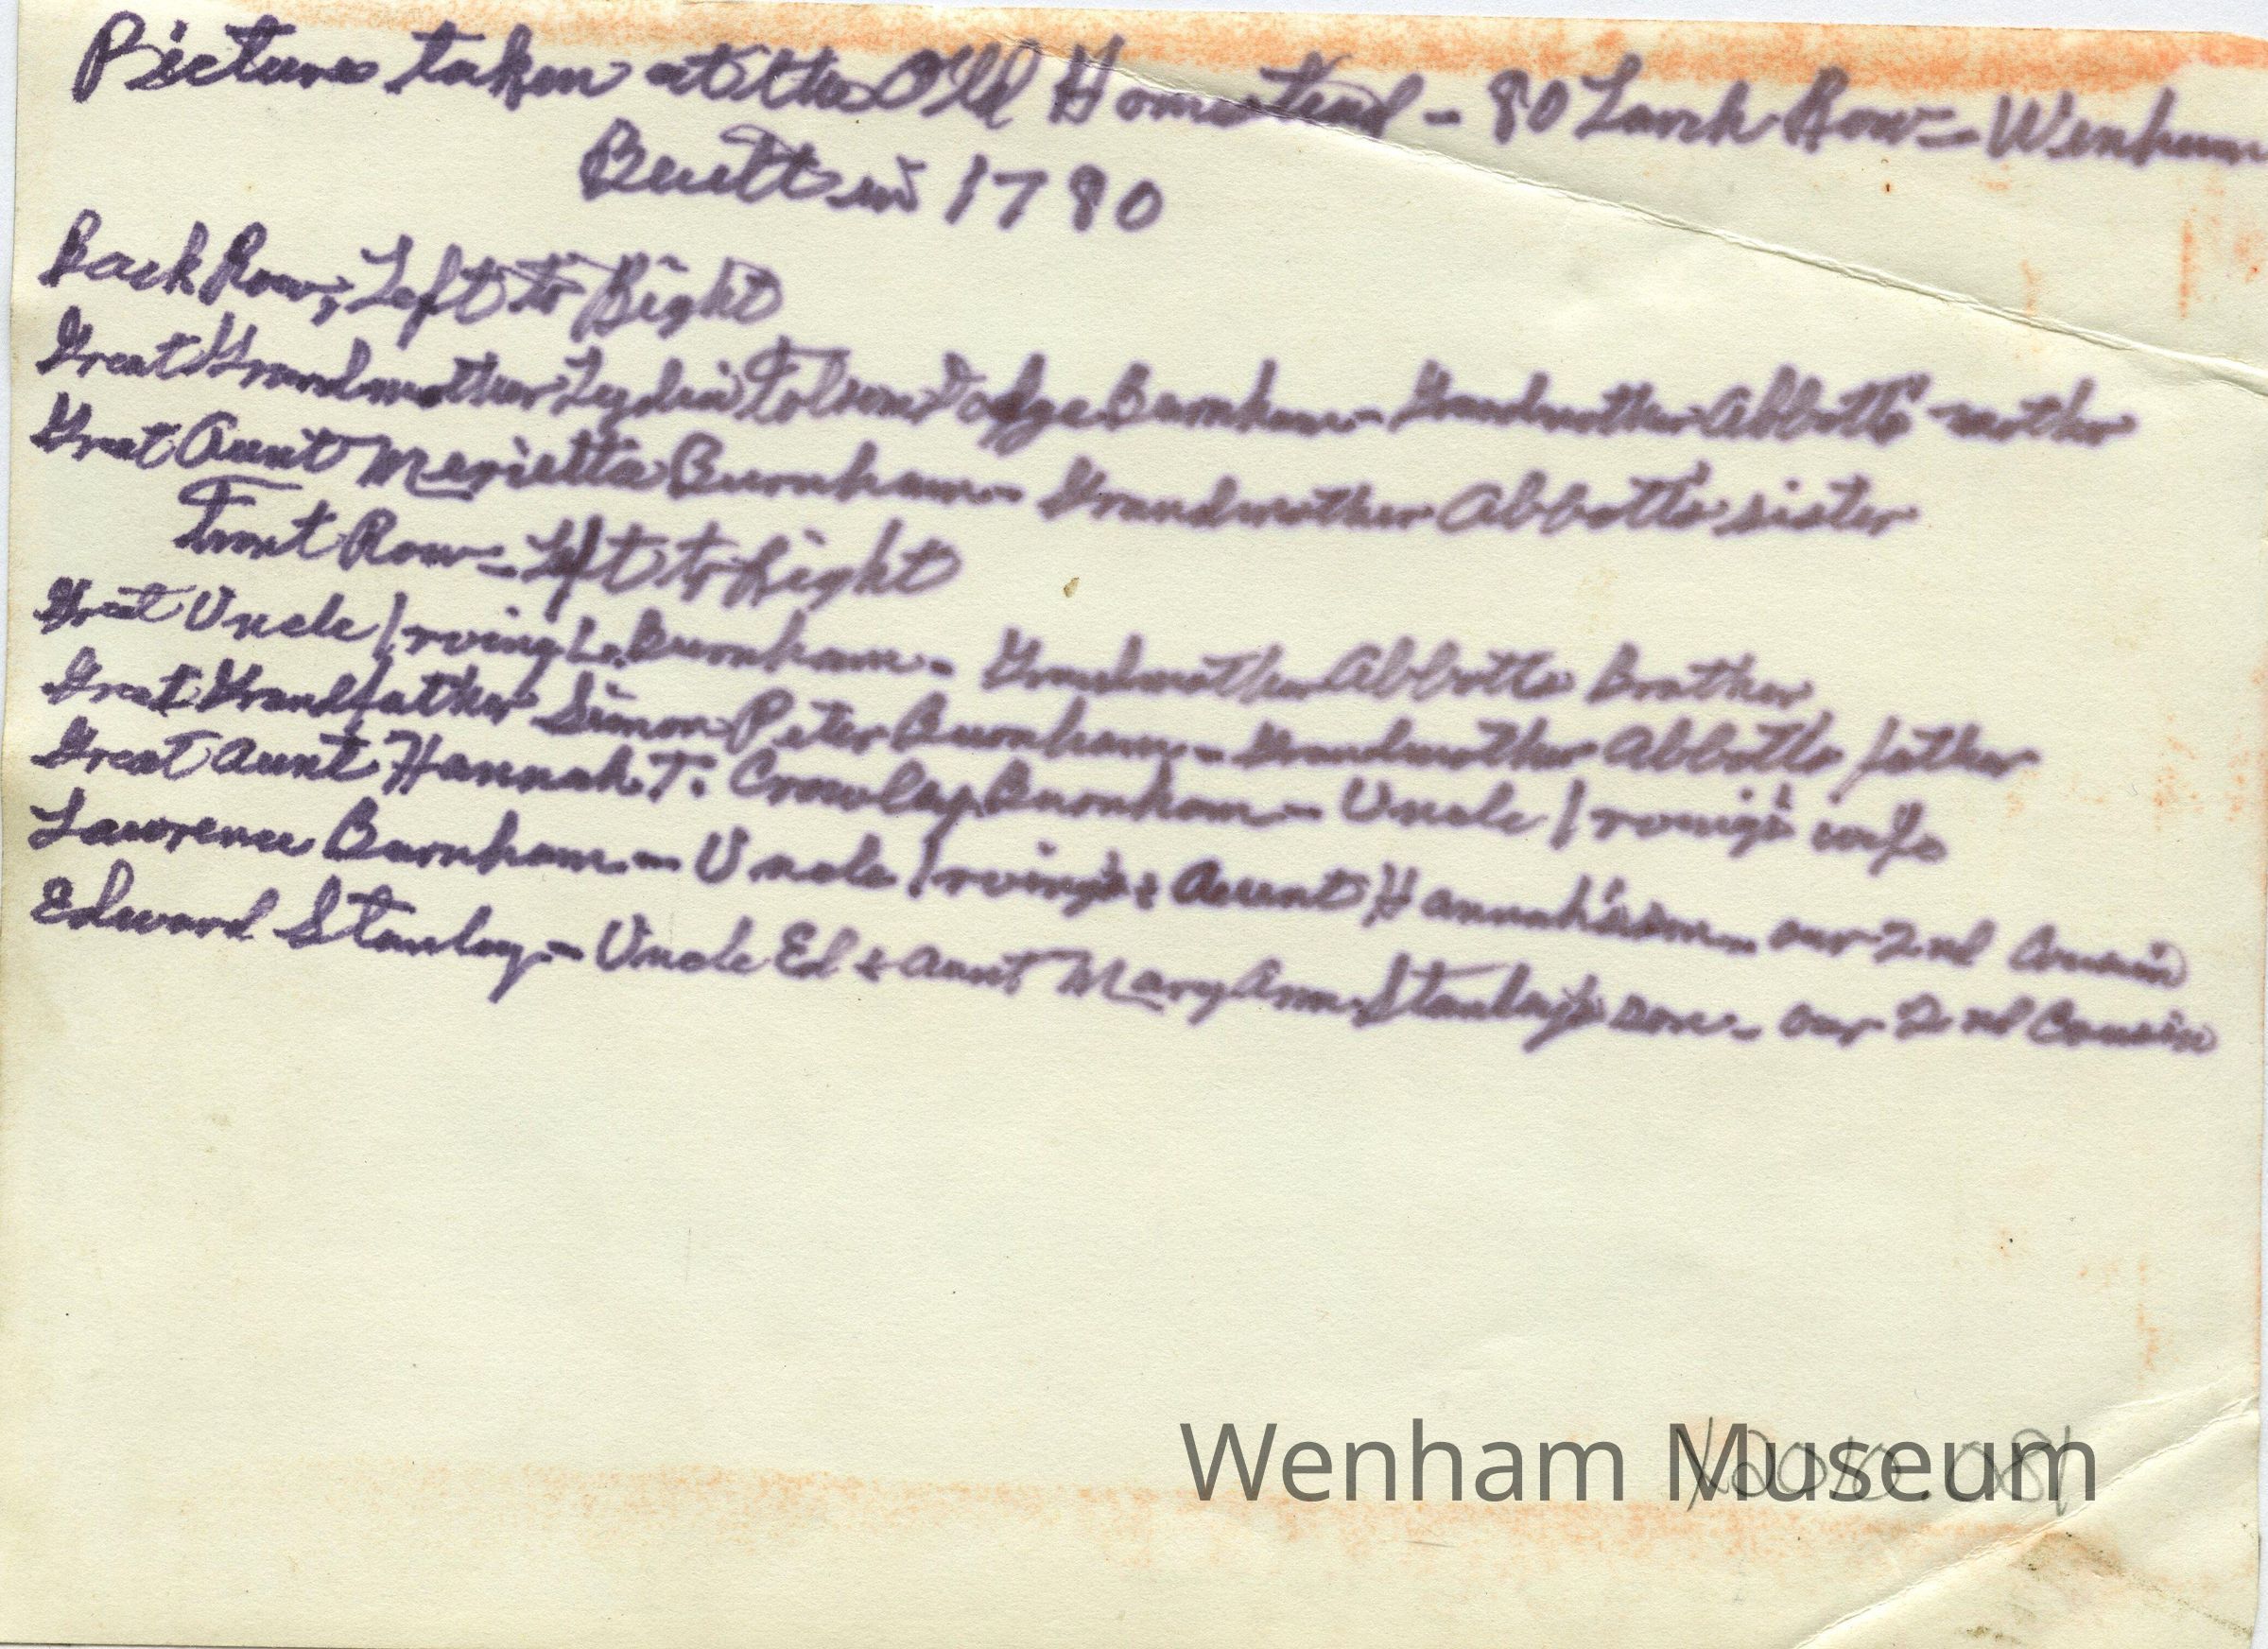 Picture taken at the Old Homestead - 80 Larch Row - Wenham
Built in 1780
Back Row, Left to Right
Great Grandmother Lydia Folsom Dodge Burnham - Grandmother Abbott's mother
Great Aunt Marietta Burnham - Grandmother Abbott's sister
Front Row - Left to Right
Great Uncle Irving L. Burnham - Grandmother Abbotts Brother
Great Grandfather Simon Peter Burnham - Grandmother Abbotts father
Great Aunt Hannah T. Crowley Burnham - Uncle Irving's wife
Lawrence Burnham - Uncle Irving's & Aunt Hannah's son - our 2nd Cousin
Edward Stanley - Uncle Ed & Aunt Mary Ann Stanley's son - our 2nd Cousin
Wenham Museum